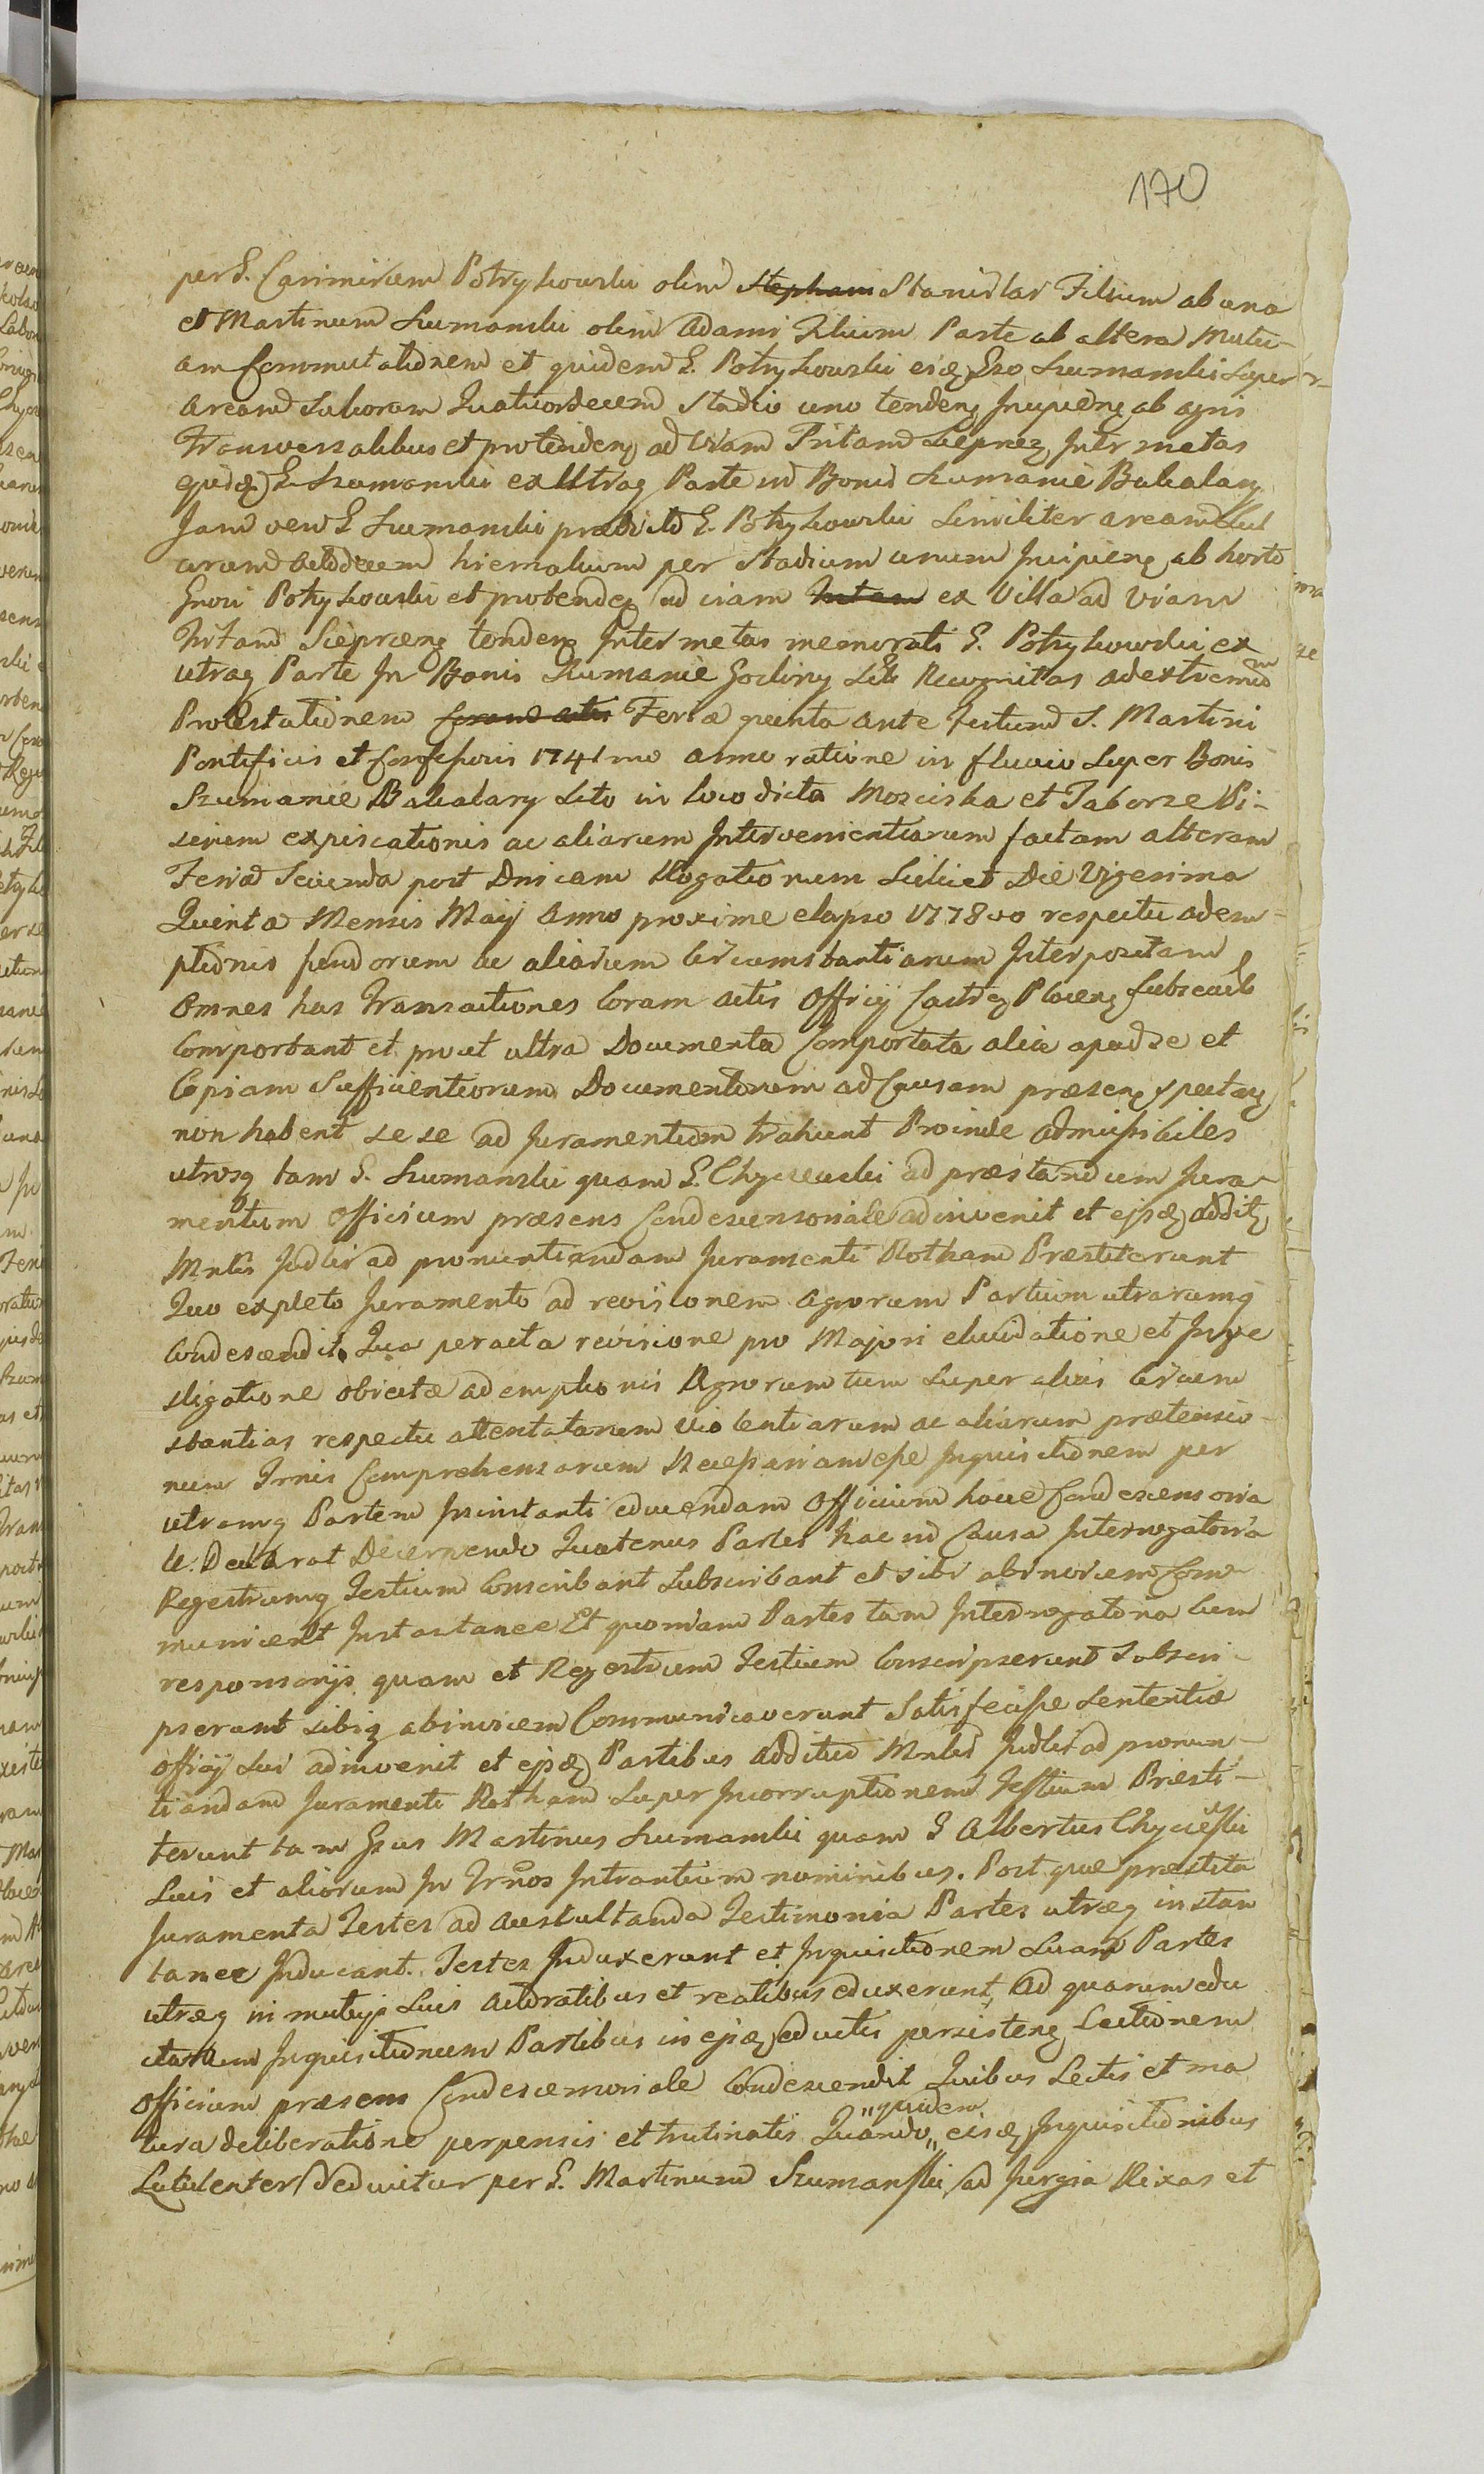 170
per G. Casimirum Potrykowski olim Stephani Stanislai Filium ab una
et Martinum Szumanski olim Adami Filium Parte ab altera Mutu-
am Commutationem et quidem G. Potrykowski eidę Gso Szumanski super
aream Sulcorum Quatuordecem Stadio uno tendenę Incipienę ab agris
Transversalibus et protendenę ad viam Tritam Sieprnez Inter metas
ejusdę G. Szumanski ex Utraq Parte in Bonis Szumanie Bakalary
Jam vero G Szumanski prædicto G. Potrykowski Similiter aream Sul
corum octodecem hiemalium per Stadium unum Incipienę ab horto
Gnosi Potrykowski et protendeę ad viam Tritam ex Villa ad Viam
Tritam Sieprcenę tendenę Inter metas memorati G. Potrykowski ex
utraq Parte In Bonis Szumanie Godziny Sitis Recognitas ad extremum
Protestationem Coram actis Feria quinta ante Festum S. Martini
Pontificis et Confessoris 1741mo anno ratione in fluvio Super Bonis
Szumanie Bakalary Sito in loco dicta Mosciska et Taborze Pi-
scium expiscationis ac aliarum Intervenientiarum factam alteram
Feria Secunda post Dnicam Rogationum Scilicet Die Vigesima
Quinta Mensis Maij Anno proxime elapso 1778vo respectu adem-
ptionis fundorum ac aliarum Circumstantiarum Interpositam
Omnes has Transactiones Coram actis Officij Castrę Plocenę
Comportant et prout ultra Documenta Comportata alia apud se et
Copiam Sufficientiorum Documentorum ad Causam præsenę spectanę
non habent sese ad Juramentum trahunt Proinde admissibiles
utrosq tam G. Szumanski quam G. Chyczewski ad præstandum Jura-
mentum Officium præsens Condescensoriale adinvenit et ejsdę addito
Mnlis Judlis ad pronuntiandam Juramenti Rotham Præstiterunt
Quo expleto Juramento ad revisionem Agrorum Partium utrarumq
Condescendit. Qua peracta revisione pro Majori elucidatione et Inve
stigatione obiectæ ademptionis Agrorum tum super alias Circum
stantias respectu attentatarum violentiarum ac aliarum prætensio-
num Trnis Comprehensarum Necessariam esse Inquisitionem per
utramq Partem Instanti educendam Officium hocce Condescensoria
le Declarat Decernendo Quatenus Partes hac in Causa Interrogatoria
Regestrumq Testium Conscribant Subscribant et sibi abinvicem Com-
municent Instantanee Et quoniam Partes tam Interrogatoria Cum
responsorijs quam et Regestrum Testium Conscripserunt Subscri-
pserunt sibiq abinvicem Communicaverunt Satisfecisse Sententiæ
Officij Sui adinvenit et ejsdę Partibus addito Mnlis Judlis ad pronun-
tiandam Juramenti Rotham Super Incorruptionem Testium Præsti-
terunt tam Gsus Martinus Szumanski quam G Albertus Chyczewski
Suis et aliorum In Trnos Intrantium nominibus. Post quæ præstita
Juramenta Testes ad auscultanda Testimonia Partes utræq instan
tanee Inducant. Testes Induxerunt et Inquisitionem Suam Partes
utræq in mutuis Suis actoratibus et reatibus eduxerunt, Ad quarum edu
ctarum Inquisitionum Partibus in ejsdę eductis persistenę Lectionem
Officium præsens Condescensoriale Condescendit Quibus Lectis et ma
tura deliberatione perpensis et trutinatis Quando "quidem" eisdę Inquisitionibus
Luculenter Deducitur per G. Martinum Szumanski ad Jurgia Rixas et